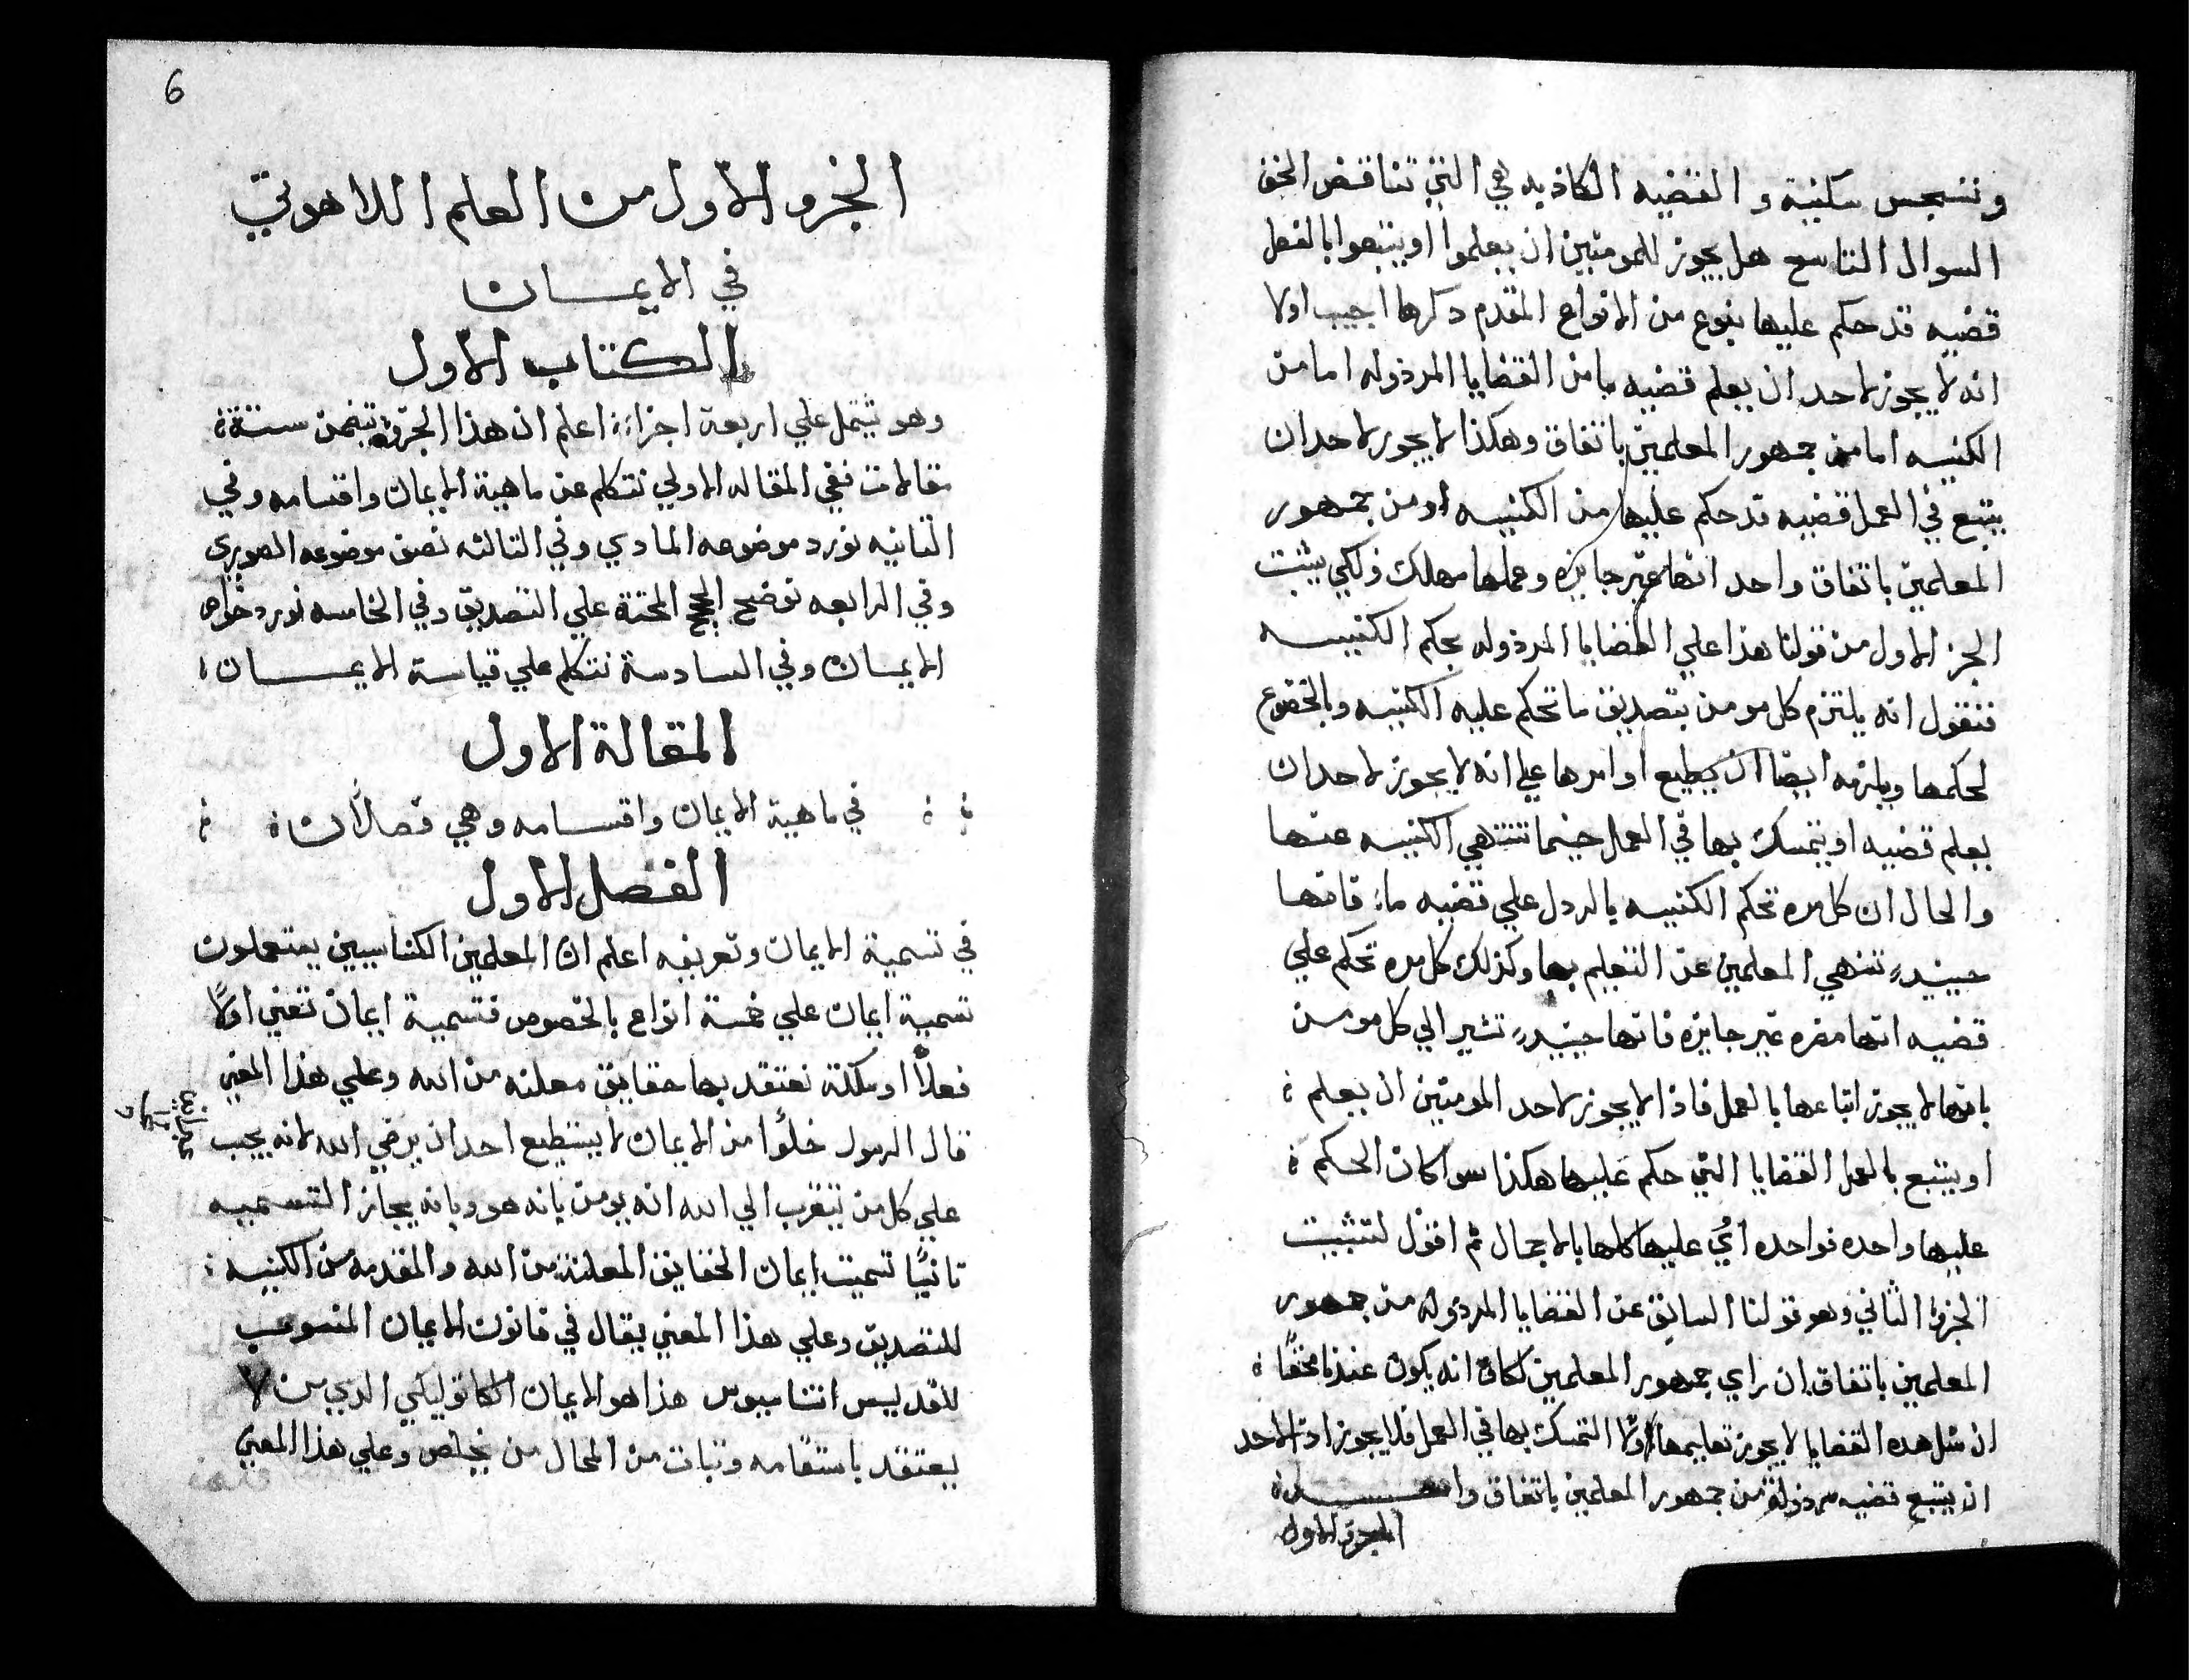 وتنجس سكنية والقضيه الكاذبه هي التي تناقض الحق
السوال التاسع هل يجوز للمومنين ان يعلموا او يتبعوا بالفعل
قضيه قد حكم عليها بنوع من الانواع المتقدم دكرها اجيب اولا
انه لا يجوز لاحد ان يعلم قضيه ما من القضايا المردوله اما من
الكنيسه اما من جمهور المعلمين باتفاق وهكذا لا يجوز لاحد ان
يتبع في العمل قضيه قد حكم عليها من الكنيسه او من جمهور
المعلمين باتفاق واحد انها غير جايزه وعملها مهلك ولكي يثبت
الجز الاول من قولنا هذا علي القضايا المردوله بحكم الكنيسه
فنقول انه يلتزم كل مومن بتصديق ما تحكم عليه الكنيسه وبالخضوع
لحكمها ويلزمه ايضا ان يطيع اوامرها علي انه لا يجوز لاحد ان
يعلم قضيه او يتمسك بها في العمل حينما تنتهي الكنيسه عنها
والحال ان كل مره تحكم الكنيسه بالردل علي قضيه ما فانها
حينيدٍ تنهي المعلمين عن التعليم بها وكذلك كل مره تحكم علي
قضيه انها مضره غير جايزه فانها حينيدٍ تشير الي كل مومن
بانها لا يجوز اتباعها بالعمل فاذا لا يجوز لاحد المومنين ان يعلم
او يتبع بالعمل القضايا التي حكم عليها هكذا سوا كان الحكم
عليها واحده فواحده اي عليها كلها بالاجمال ثم اقول لتثبيت
الجزو الثاني وهو قولنا السابق عن القضايا المردوله من جمهور
المعلمين باتفاق ان راي جمهور المعلمين كافة انه يكون عندنا محقًا
ان مثل هده القضايا لا يجوز تعليمها ولا التمسك بها في العمل فلا يجوز اذا لاحد
ان يتبع قضيه مرذولة من جمهور المعلمين باتفاق واحد
الجزو الاول
6
الجزو الاول من العلم اللاهوتي
في الايمـان
الكتاب الاول
وهو يشتمل علي اربعة اجزاء اعلم ان هذا الجزو يتضمن ستة
مقالات ففي المقاله الاولي نتكلم عن ماهية الايمان واقسامه وفي
الثانيه نورد موضوعه المادي وفي الثالثه نصف موضوعه الصوري
وفي الرابعه نوضح الحجج المحتة علي التصديق وفي الخامسه نورد خواص
الايمان وفي السادسة نتكلم علي قياسة الايمـان
المقالة الاول
في ماهية الايمان واقسامه وهي فصلان
الفصل الاول
في تسمية الايمان وتعريفه اعلم ان المعلمين الكنايسيين يستعملون
تسمية ايمان علي خمسة انواع بالخصوص فتسمية ايمان تعني اولًا
فعلًا او ملكة نعتقد بها حقايق معلنه من الله وعلي هذا المعني
قال الرسول خلوًا من الايمان لا يستطيع احد ان يرضي الله لانه يجب
علي كل من يتقرب الي الله انه يومن بانه هو وبانه يجاز التسمييه
ثانيًا تسميت ايمان الحقايق المعلنة من الله والمقدمه من الكنيسه
للتصديق وعلي هذا المعني يقال في قانون الايمان المنسوب
للقديس اتناسيوس هذا هو الايمان الكاتوليكي الدي من لا
يعتقد باستقامه وتبات من المحال من يخلص وعلي هذا المعني